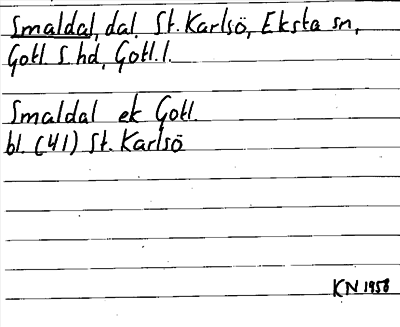 Smaldal, dal, St. Karlsö, Eksta sn,
Gotl. S. hd, Gotl. l.
Smaldal ek Gotl.
bl. (41) St. Karlsö
KN 1958